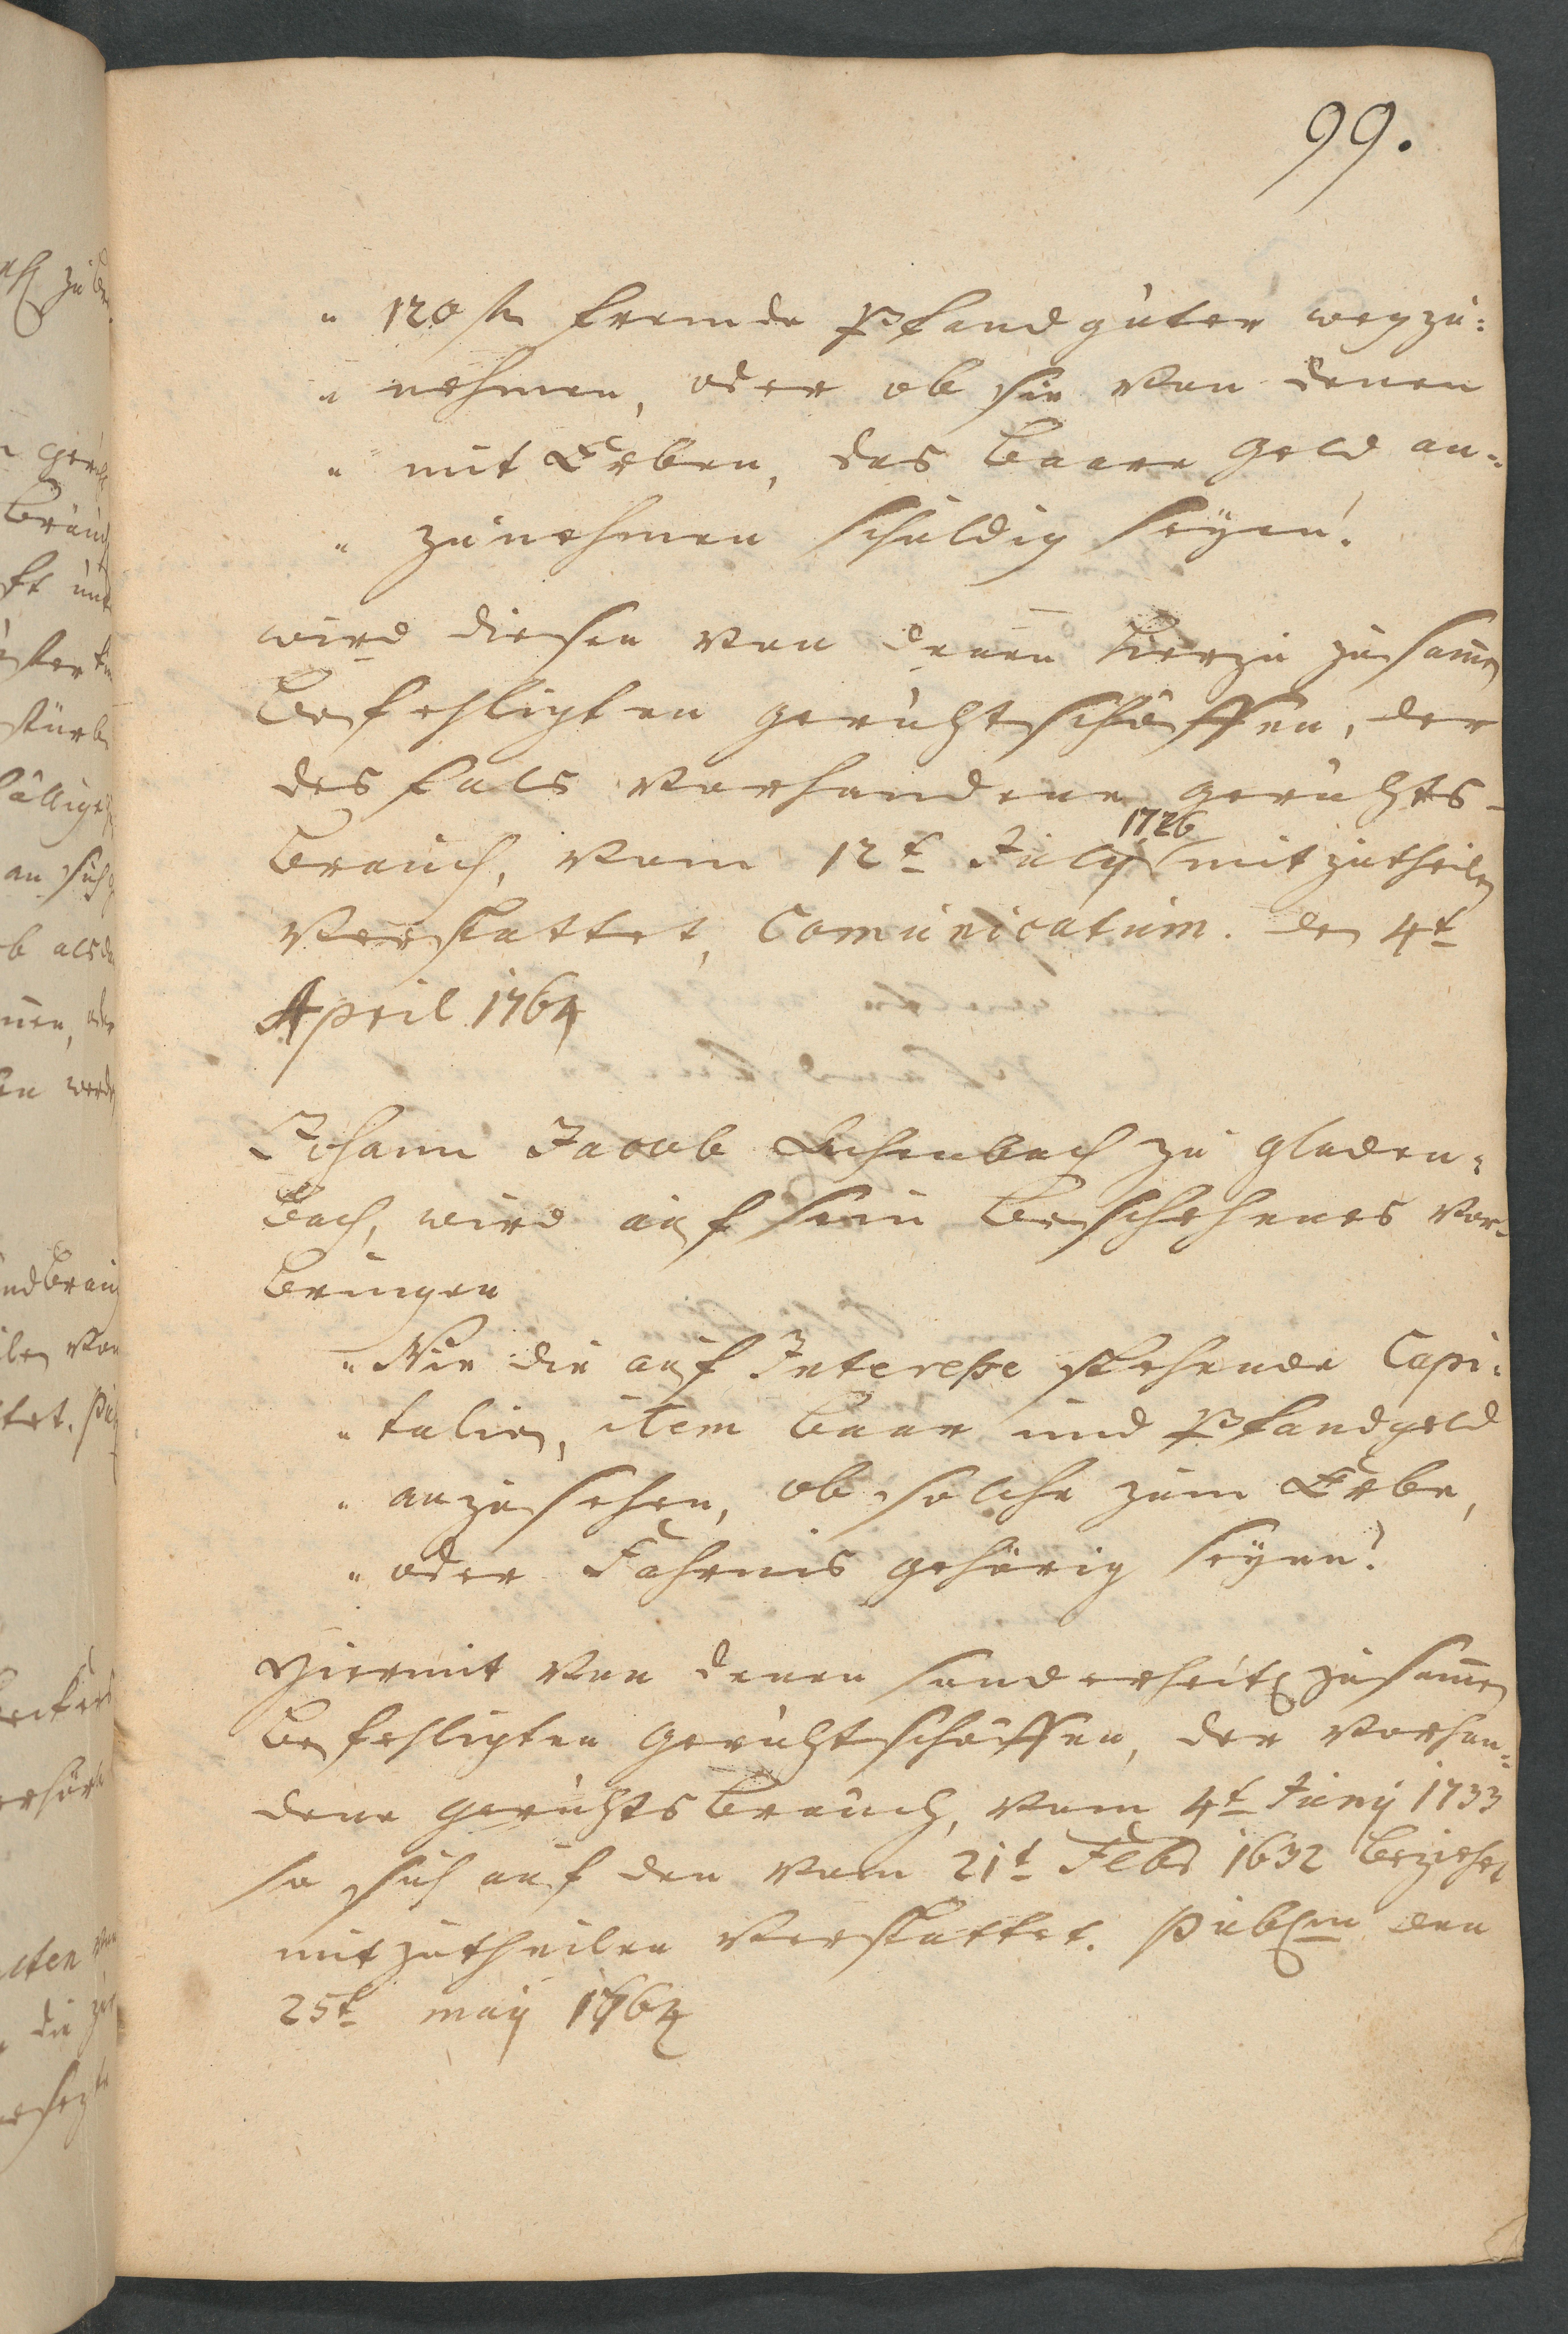 99.
" 120 fl fremde Pfandgüter wegzu=
" nehmen, oder ob sie von denen
" mit Erben, das baare Geld an=
" zunehmen schuldig seyen?
wird diesen von denen hierzu zusamen
befehligten gerichtschöffen, der
desfals vorhandene gerichts-
brauch, vom 12t July 1726 mitzutheilen
verstattet, Comunicatum. den 4t
April 1764
Johann Jacob Achenbach zu gladen=
bach, wird auf sein beschehenes vor=
bringen
" Wie die auf Interesse stehende Capi=
" talien, item baar und Pfandgeld
" anzusehen, ob solche zum Erbe,
" oder Fahrnis gehörig seyen?
Hiermit von denen sonderheitl. zusamen
befehligten gerichtschöffen, der vorhan=
dene gerichtsbrauch, vom 4t Juny 1733
so sich auf den vom 21t Febr 1632 beziehet
mitzutheilen verstattet. Publm den
25t may 1764